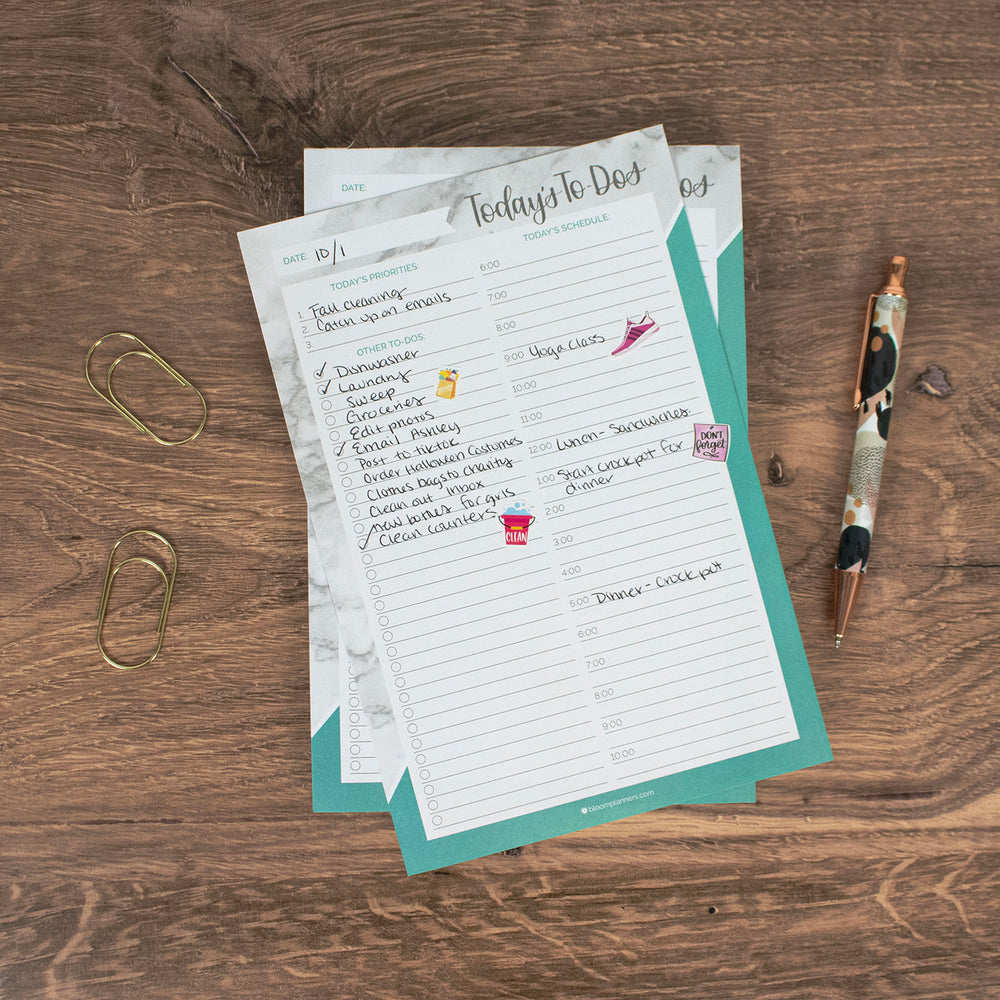 DATE:
Today's To-Dos
os
DATE: 10/1
TODAY'S PRIORITIES:
1. Fall cleaning
2. Catch up on emails
3.
OTHER TO-DOS:
Dishwasher
Laundry
Sweep
Groceries
Edit photos
Email Ashley
Post to tiktok
Order Halloween Costumes
Clothes bags to charity
Clean out inbox
new bottles for girls
Clean counters
CLEAN
TODAY'S SCHEDULE:
6:00
7:00
8:00
9:00 Yoga Class
10:00
11:00
12:00 Lunch - Sandwiches
1:00 Start crockpot for
dinner
DON'T
forget
2:00
3:00
4:00
5:00 Dinner - Crock pot
6:00
7:00
8:00
9:00
10:00
bloomplanners.com